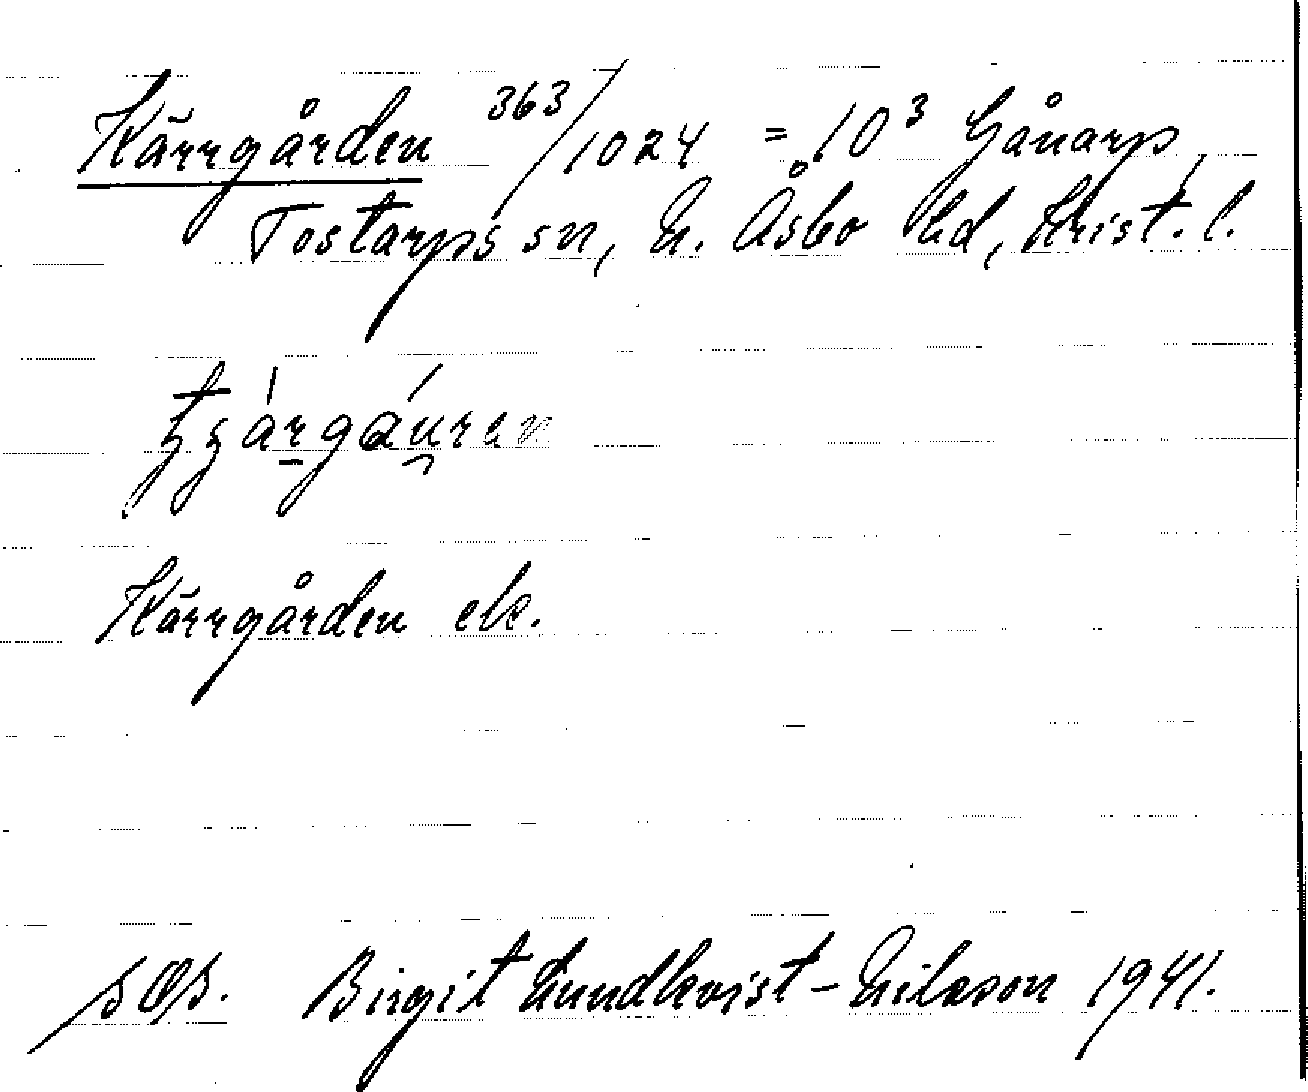 Kärrgården 363/1024 = 10³ Gånarp,
Tostarps sn, N. Åsbo hd, Krist. l.
Kärrgården ek.
SOS. Birgit Lundkvist-Nilsson 1941.